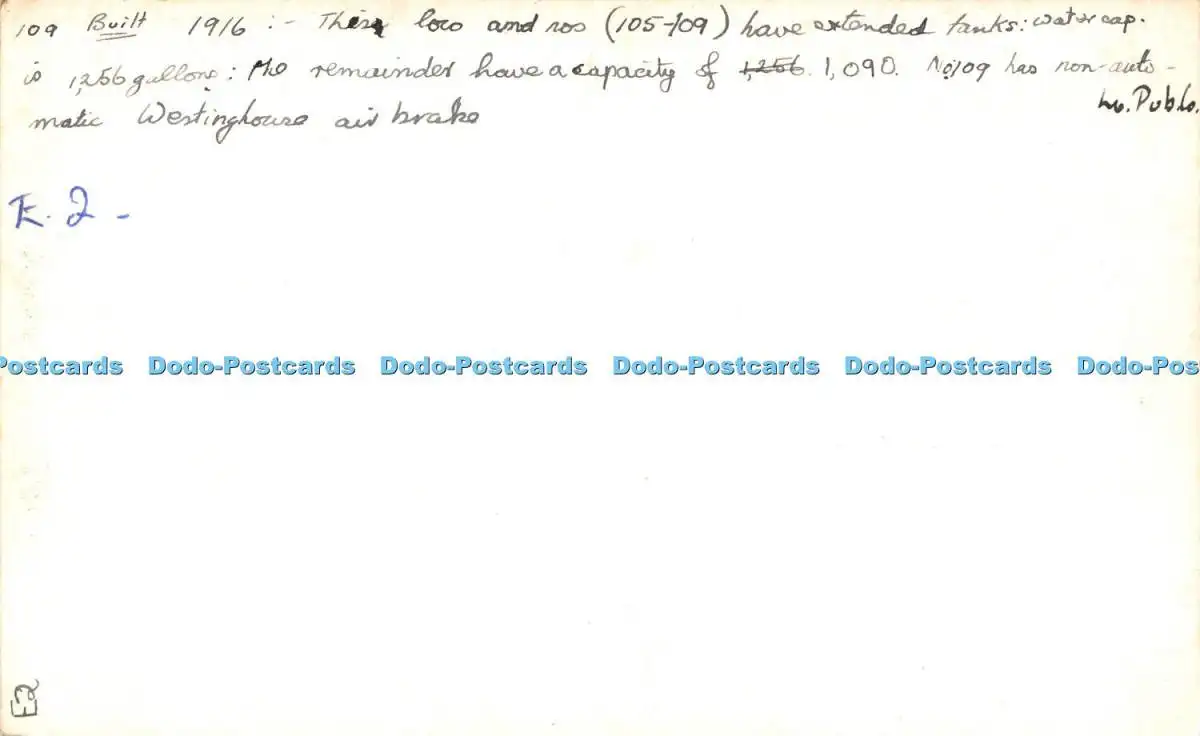 109 Built 1916 :- This loco and nos (105-109) have extended tanks: water cap.
is 1,256 gallons: the remainder have a capacity of 1,256. 1,090. No 109 has non-auto-
matic Westinghouse air brake
Lo. Pub Co.
E. 2 -
Postcards Dodo-Postcards Dodo-Postcards Dodo-Postcards Dodo-Postcards Dodo-Pos
E2